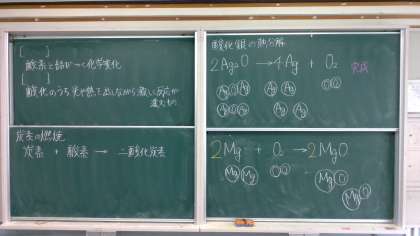 [　　　]
酸素と結びつく化学変化
[　　　]
酸化のうち光や熱を出しながら激しく反応が
進むもの
炭素の燃焼
炭素 + 酸素 → 二酸化炭素
酸化銀の熱分解
2Ag₂O → 4Ag + O₂ 完成
Ag O Ag Ag Ag O O
Ag O Ag Ag Ag
2Mg + O₂ → 2MgO
Mg Mg O O Mg O
Mg O